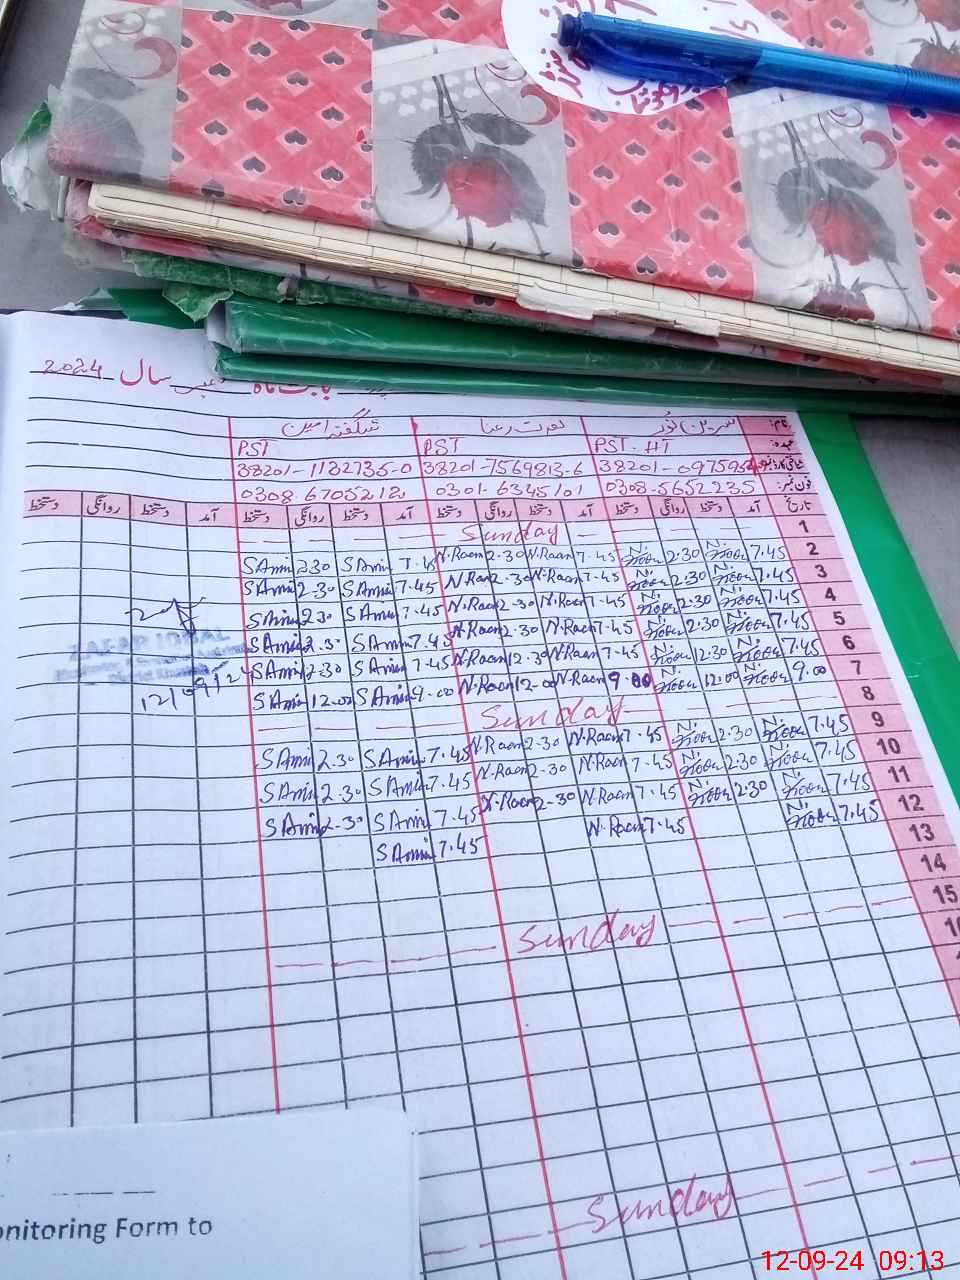 بابت ماہ ستمبر سال 2024
نام: نسرین نور نصرت رعنا شگفتہ امین
عہدہ: PST - HT PST PST
شناختی کارڈ نمبر 38201-097595 38201-7569813-6 38201-1132735-0
فون نمبر: 0308-5652235 0301-6345101 0308-6705212
تاریخ آمد دستخط روانگی دستخط آمد دستخط روانگی دستخط آمد دستخط روانگی دستخط آمد دستخط روانگی دستخط
1 Sunday
2 7.45 N. Noor 2.30 N. Noor 7.45 N.Raan 2.30 N.Raan 7.45 S Amin 2.30 S Amin
3 7.45 N. Noor 2.30 N. Noor 7.45 N.Raan 2.30 N.Raan 7.45 S Amin 2.30 S Amin
4 7.45 N. Noor 2.30 N. Noor 7.45 N.Raan 2.30 N.Raan 7.45 S Amin 2.30 S Amin
5 7.45 N. Noor 2.30 N. Noor 7.45 N.Raan 2.30 N.Raan 7.45 S Amin 2.30 S Amin
6 7.45 N. Noor 12.30 N. Noor 7.45 N.Raan 12.30 N.Raan 7.45 S Amin 2.30 S Amin
7 9.00 N. Noor 12.00 N. Noor 9.00 N.Raan 12.00 N.Raan 9.00 S Amin 12.00 S Amin
8 Sunday
9 7.45 N. Noor 2.30 N. Noor 7.45 N.Raan 2.30 N.Raan 7.45 S Amin 2.30 S Amin
10 7.45 N. Noor 2.30 N. Noor 7.45 N.Raan 2.30 N.Raan 7.45 S Amin 2.30 S Amin
11 7.45 N. Noor 2.30 N. Noor 7.45 N.Raan 2.30 N.Raan 7.45 S Amin 2.30 S Amin
12 7.45 N. Noor 7.45 N.Raan 7.45 S Amin
13
14
15 Sunday
Sunday
ZAFAR IQBAL
12/09/24
onitoring Form to
12-09-24 09:13